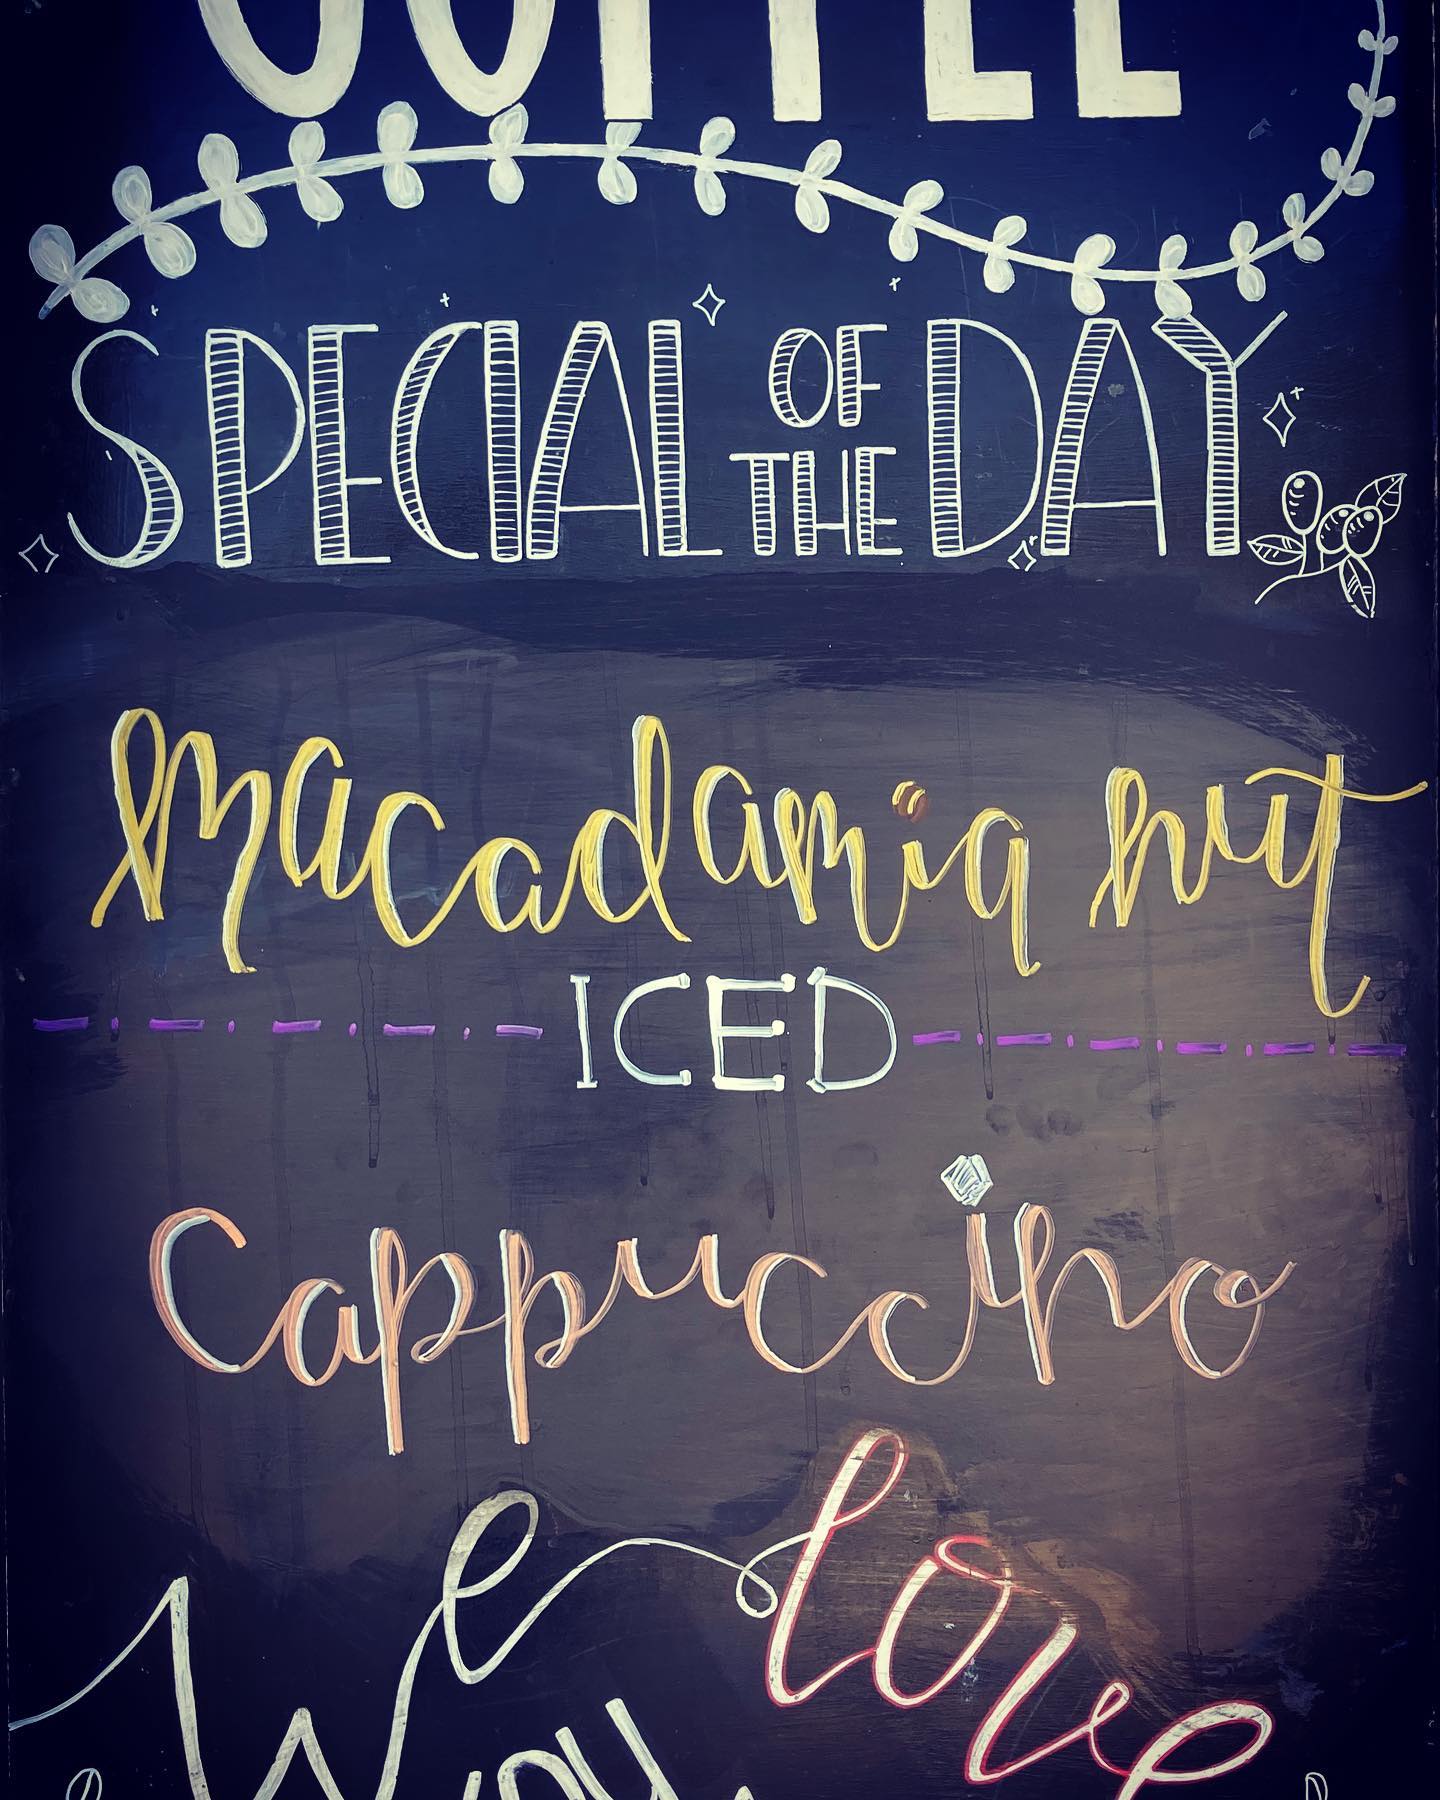 COFFEE
SPECIAL OF THE DAY
Macadamia nut
ICED
Cappuccino
We love